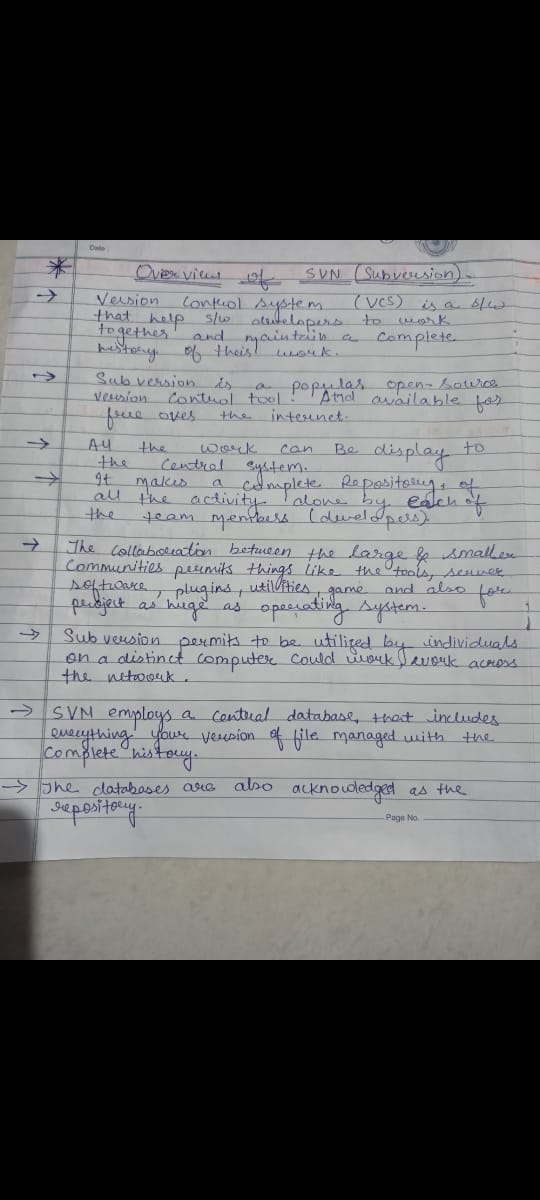 Date :
* Overview of SVN (Subversion) -
→ Version Control System (VCS) is a s/w
that help s/w developers to work
together and maintain a complete
history of their work.
→ Subversion is a popular open-source
version control tool. And available for
free over the internet.
→ All the work can Be display to
the Central System.
→ It makes a complete Repository, of
all the activity done by each of
the team members (developers).
→ The collaboration between the large & smaller
Communities permits things like the tools, server
software, plugins, utilities, game and also for
project as huge as operating system.
→ Subversion permits to be utilized by individuals
on a distinct computer could work, work across
the network.
→ SVN employs a central database, that includes
everything your version of file managed with the
Complete history.
→ The databases are also acknowledged as the
repository.
Page No.